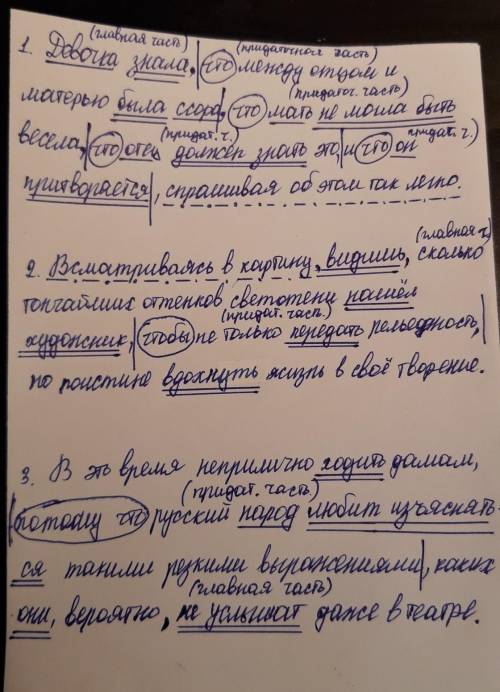 (главная часть) (придаточная часть)
1. Девочка знала, что между отцом и
(придаточ. часть)
матерью была ссора, что мать не могла быть
(придат. ч.) придат. ч.)
весела, что отец должен знать это, и что он
притворяется, спрашивая об этом так легко.
(главная ч.)
2. Всматриваясь в картину, видишь, сколько
тончайших оттенков светотени нашёл
(придат. часть)
художник, чтобы не только передать рельефность,
но поистине вдохнуть жизнь в своё творение.
3. В это время неприлично ходить дамам,
(придат. часть)
потому что русский народ любит изъяснять-
ся такими резкими выражениями, каких
(главная часть)
они, вероятно, не услышат даже в театре.